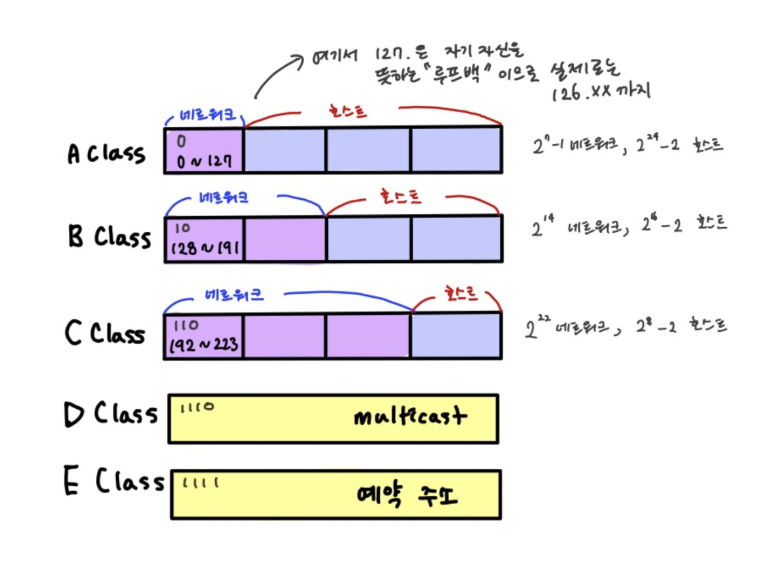 여기서 127.은 자기 자신을
뜻하는 "루프백" 이으로 실제로는
126.XX 까지
네트워크
호스트
A Class
0
0 ~ 127
2^7-1 네트워크, 2^24-2 호스트
네트워크
호스트
B Class
10
128 ~ 191
2^14 네트워크, 2^16-2 호스트
네트워크
호스트
C Class
110
192 ~ 223
2^22 네트워크, 2^8-2 호스트
D Class
1110
multicast
E Class
1111
예약 주소